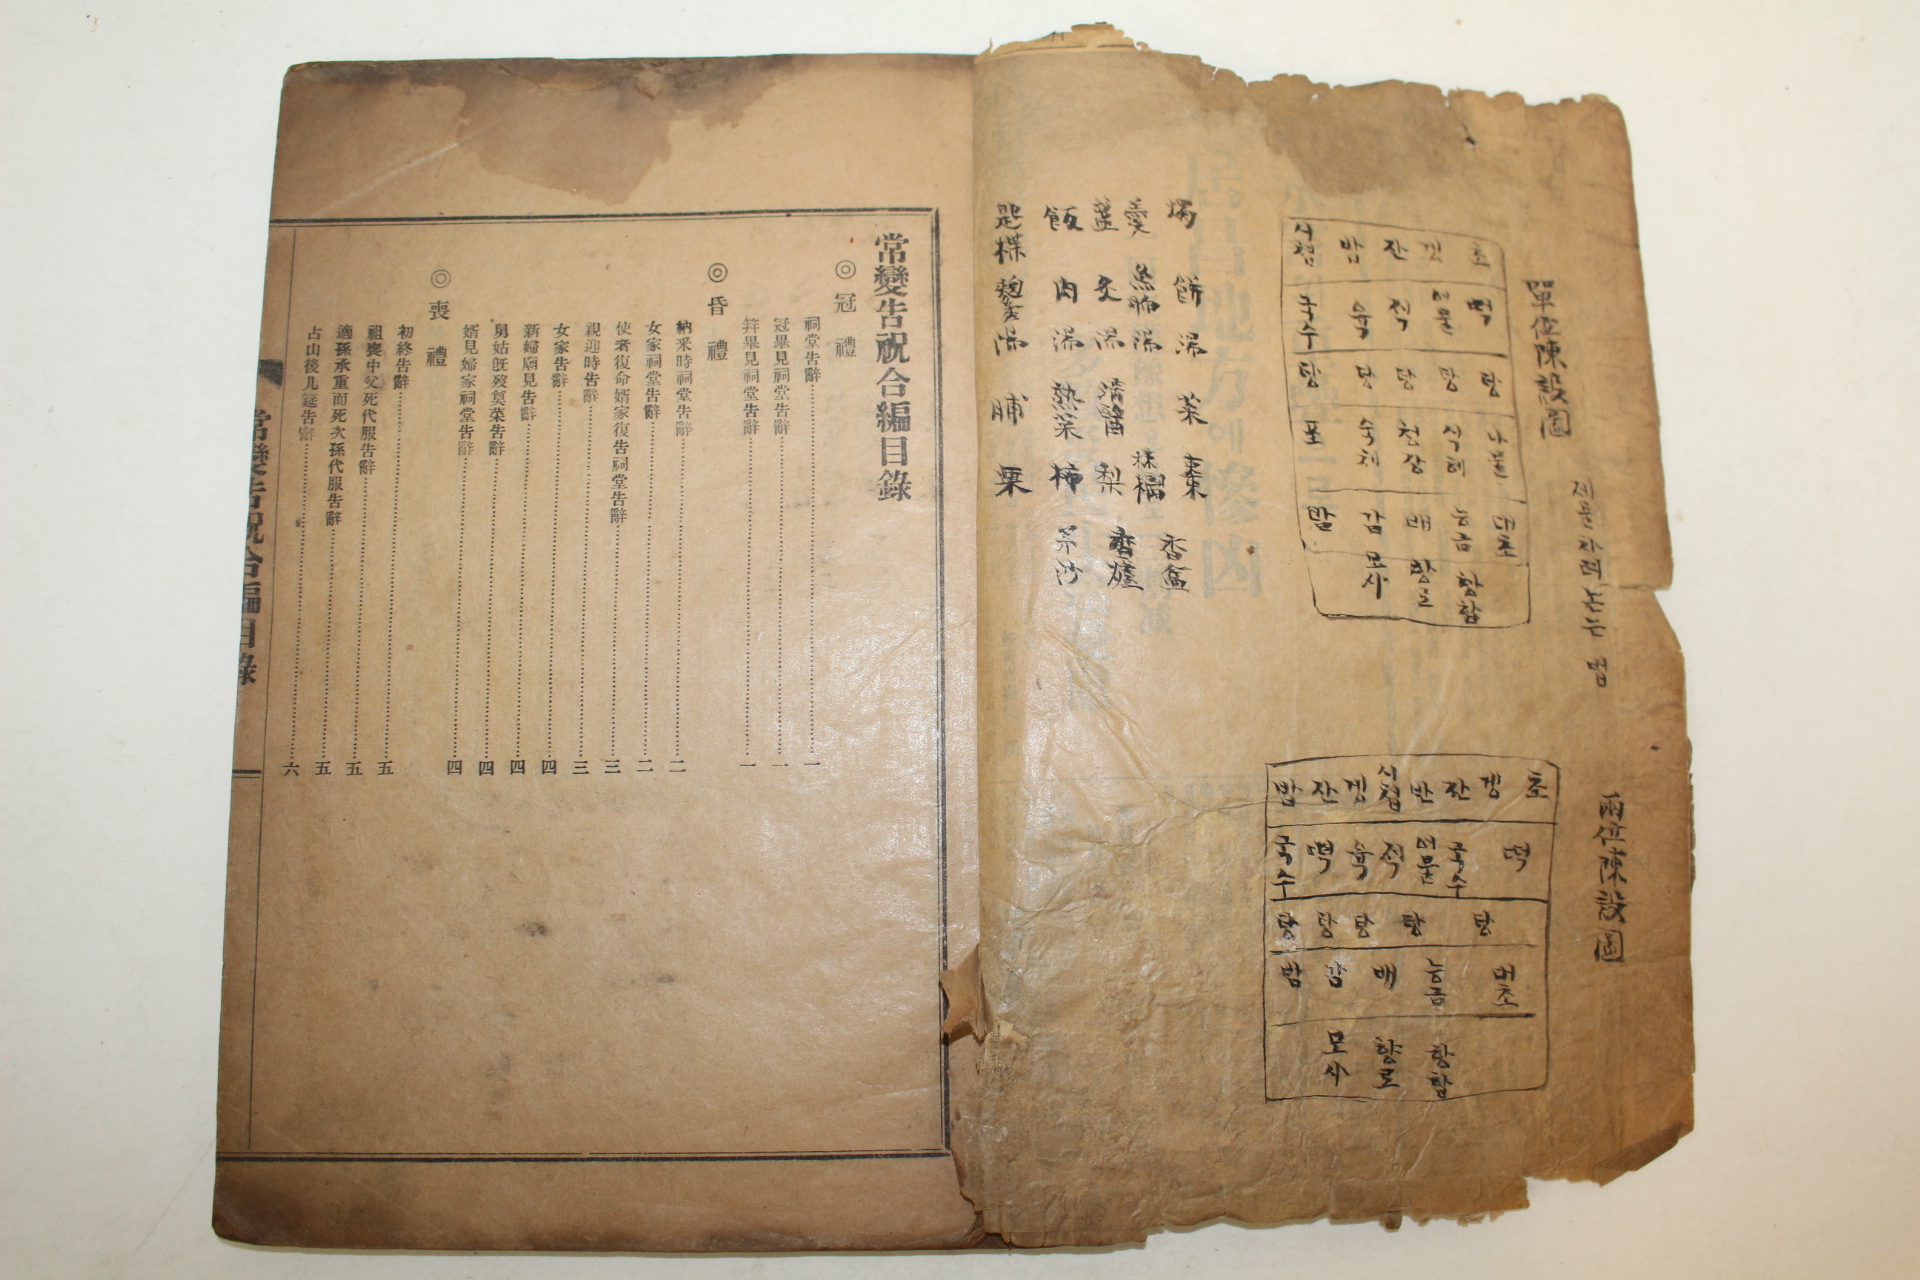 單位陳設圖
제물차려노는 법
시접 밥 잔 갯 초
국수 육 적 어물 떡
탕 탕 탕 탕 탕
포 숙채 청장 식혜 나물
밤 감 배 능금 대초
모사 향로 향합
兩位陳設圖
밥 잔 갱 시접 반 잔 갱 초
국수 떡 육 적 어물 국수 떡
탕 탕 탕 탕 탕
밤 감 배 능금 대초
모사 향로 향합
餠 湯 菜 棗 香盒
湯
炙 湯 淸醬 梨 香爐
飯 肉 湯 熟菜 柿 茅沙
匙楪 湯 脯 栗
常變告祝合編目錄
◎冠禮
祠堂告辭 一
冠畢見祠堂告辭 一
笄畢見祠堂告辭 一
◎昏禮
納采時祠堂告辭 二
女家祠堂告辭 二
使者復命婿家復告祠堂告辭 三
親迎時告辭 三
女家告辭 四
新婦廟見告辭 四
舅姑旣歿奠菜告辭 四
婿見婦家祠堂告辭 四
◎喪禮
初終告辭 五
祖喪中父死代服告辭 五
適孫承重而死次孫代服告辭 五
占山後几筵告辭 六
常變告祝合編目錄